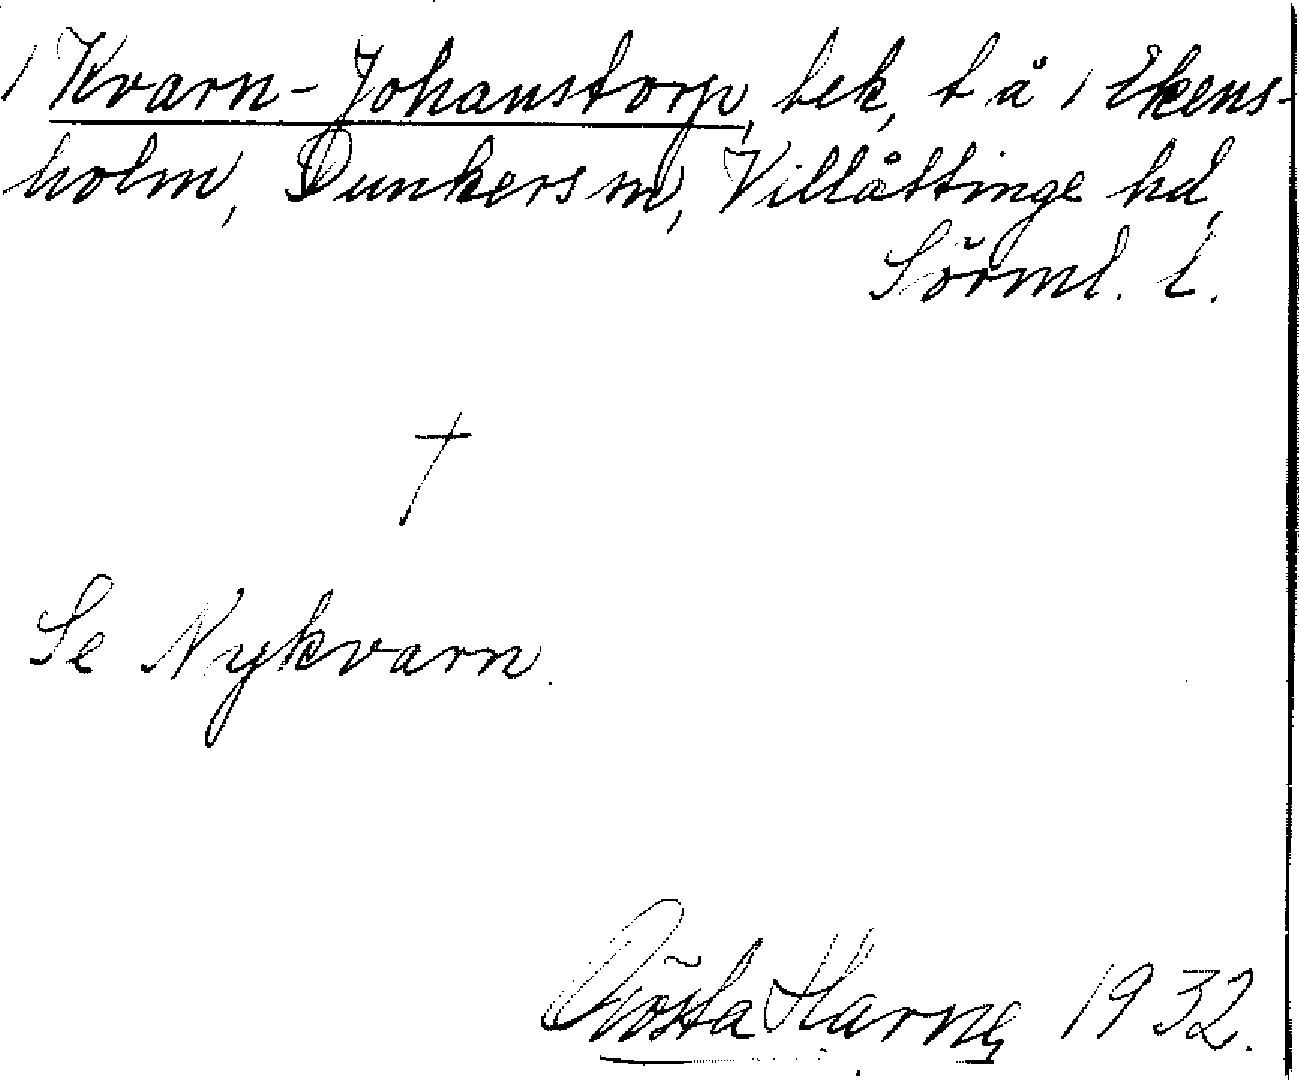 1 Kvarn-Johanstorp, bek, t å 1 Ekens-
holm, Dunkers sn, Villåttinge hd,
Sörml. l.
†
Se Nykvarn.
Gösta Harne 1932.